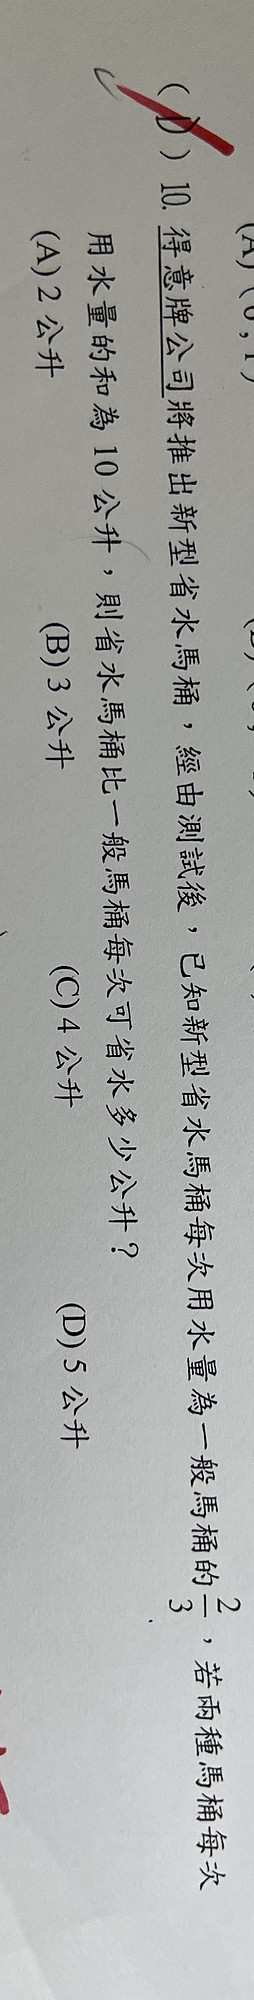 (A) ( 0 , 1 )
( D ) 10. 得意牌公司將推出新型省水馬桶，經由測試後，已知新型省水馬桶每次用水量為一般馬桶的 2/3 ，若兩種馬桶每次
用水量的和為 10 公升，則省水馬桶比一般馬桶每次可省水多少公升？
(A) 2 公升 (B) 3 公升 (C) 4 公升 (D) 5 公升